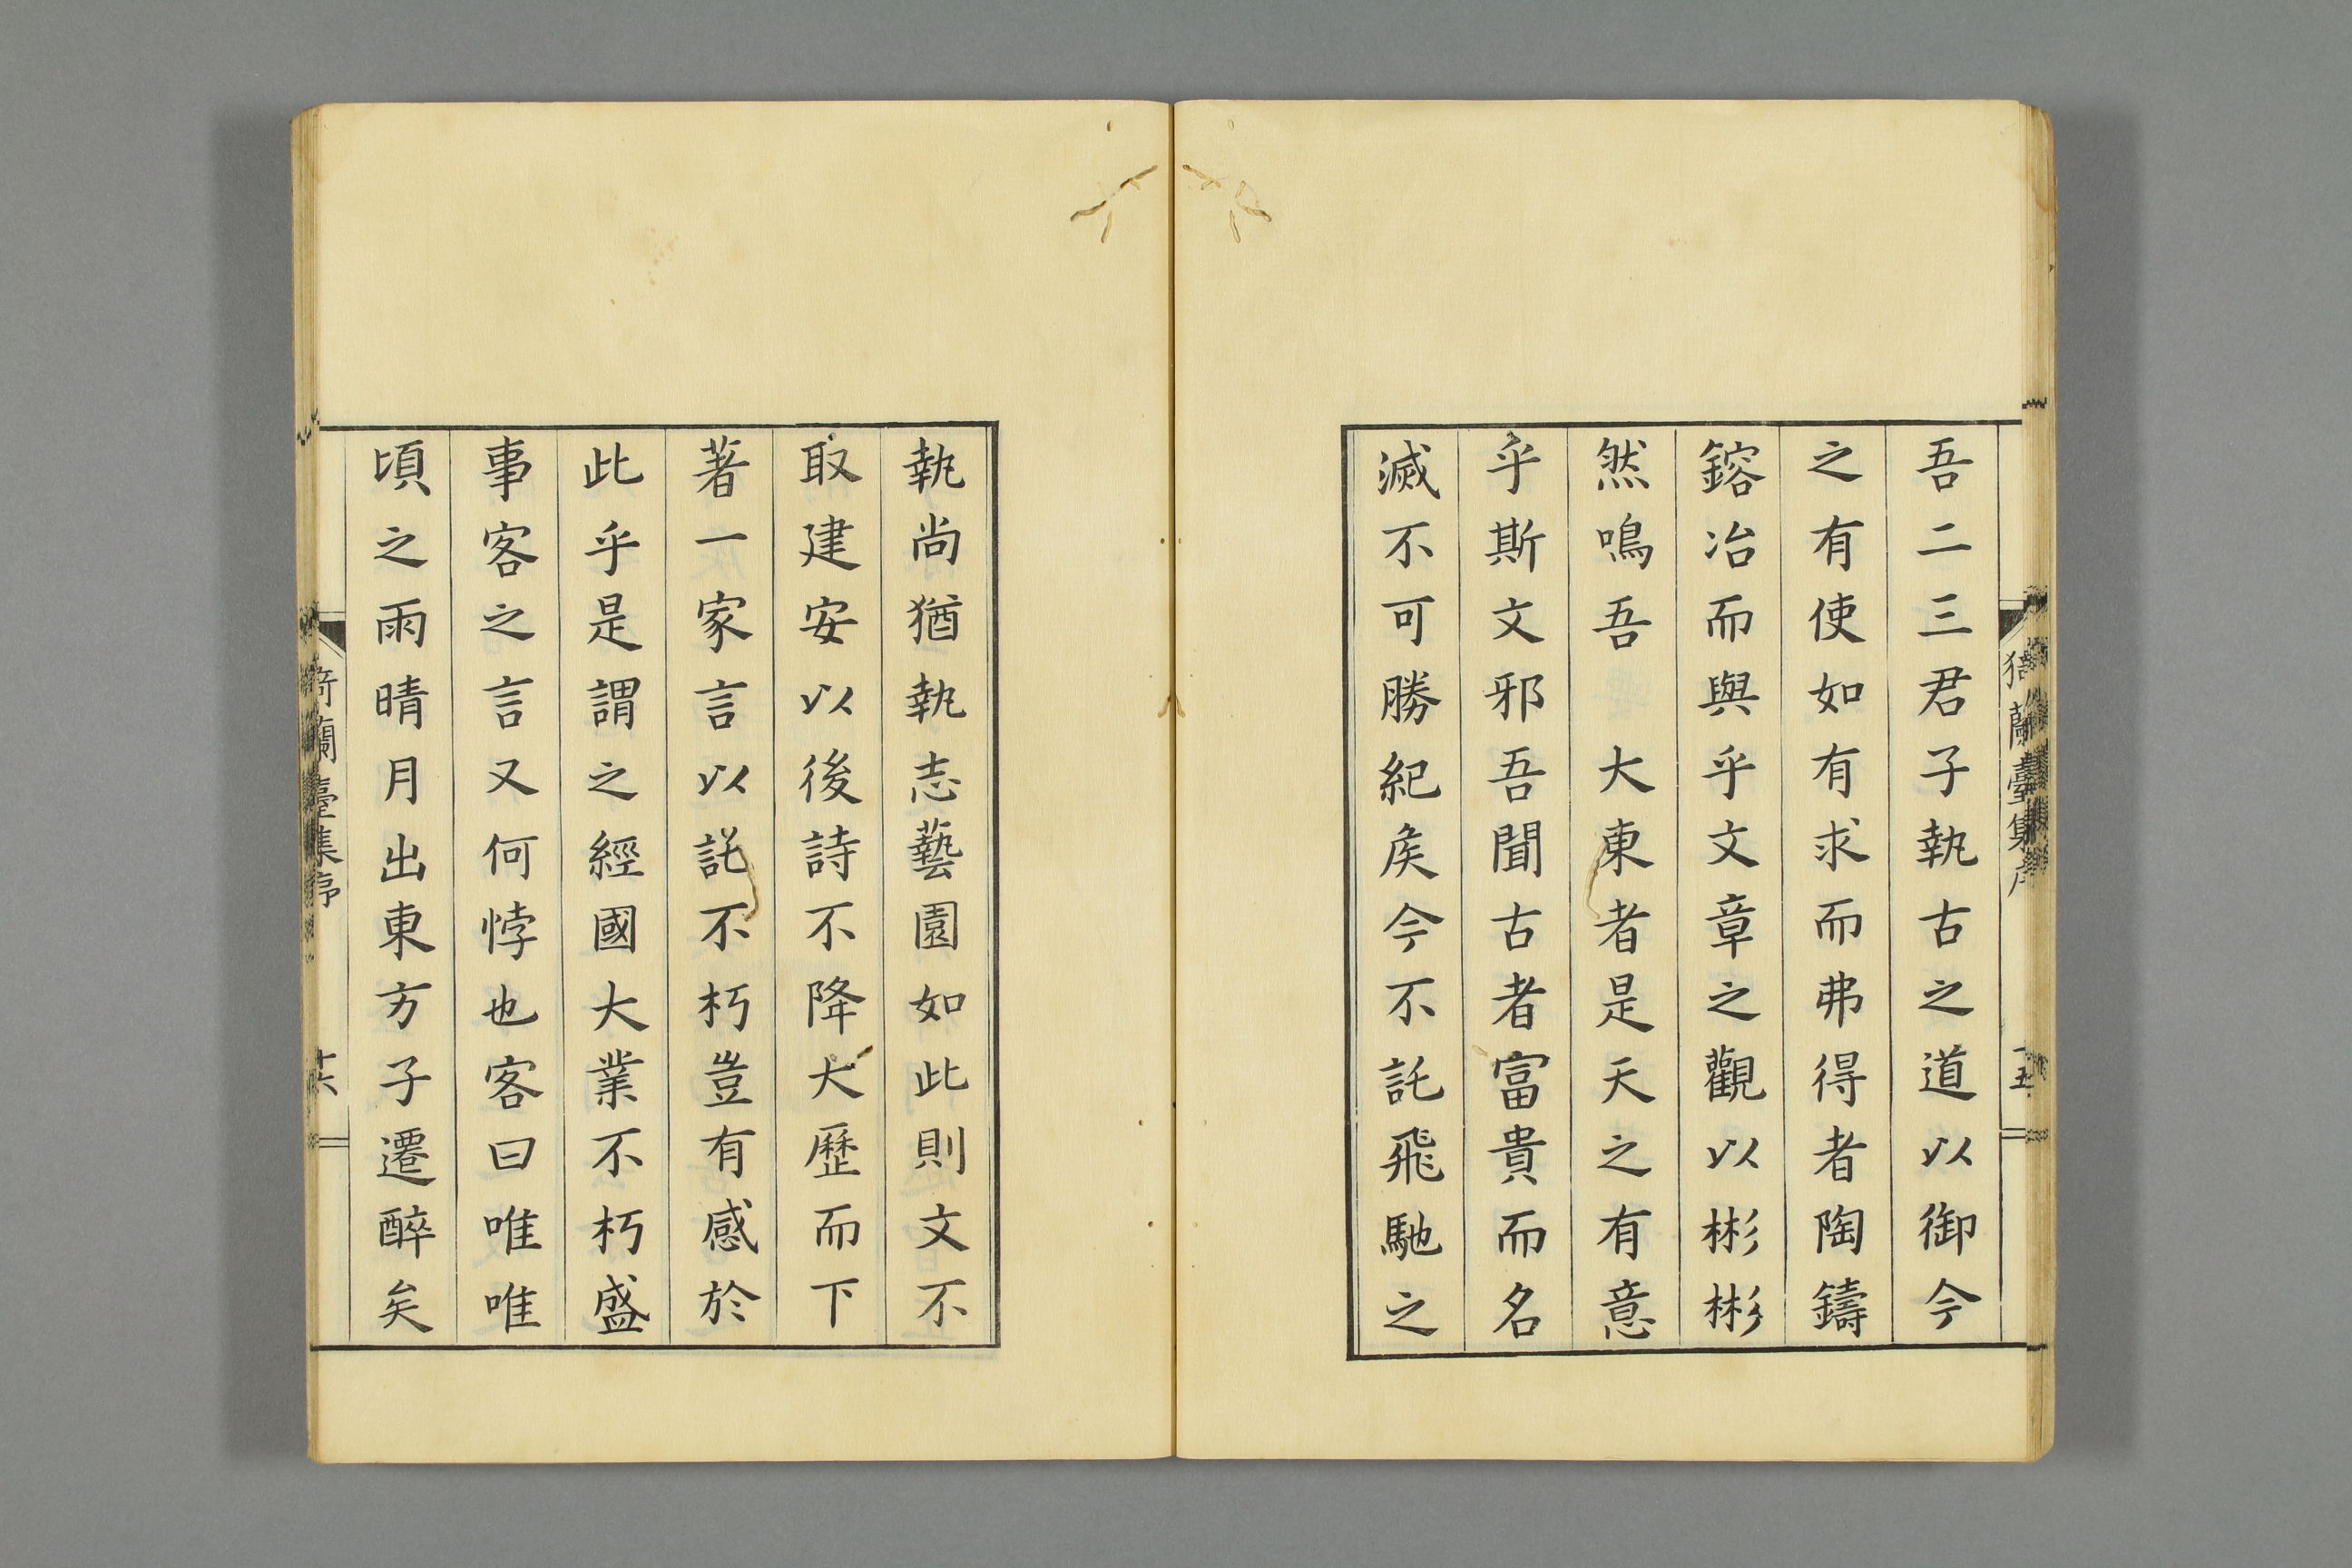 吾二三君子執古之道以御今
之有使如有求而弗得者陶鑄
鎔冶而與乎文章之觀以彬彬
然鳴吾　大東者是天之有意
乎斯文邪吾聞古者富貴而名
滅不可勝紀矦今不託飛馳之
執尚猶執志藝園如此則文不
取建安以後詩不降大歷而下
著一家言以託不朽豈有感於
此乎是謂之經國大業不朽盛
事客之言又何悖也客曰唯唯
頃之雨晴月出東方子遷醉矣
猗蘭臺集序
十六